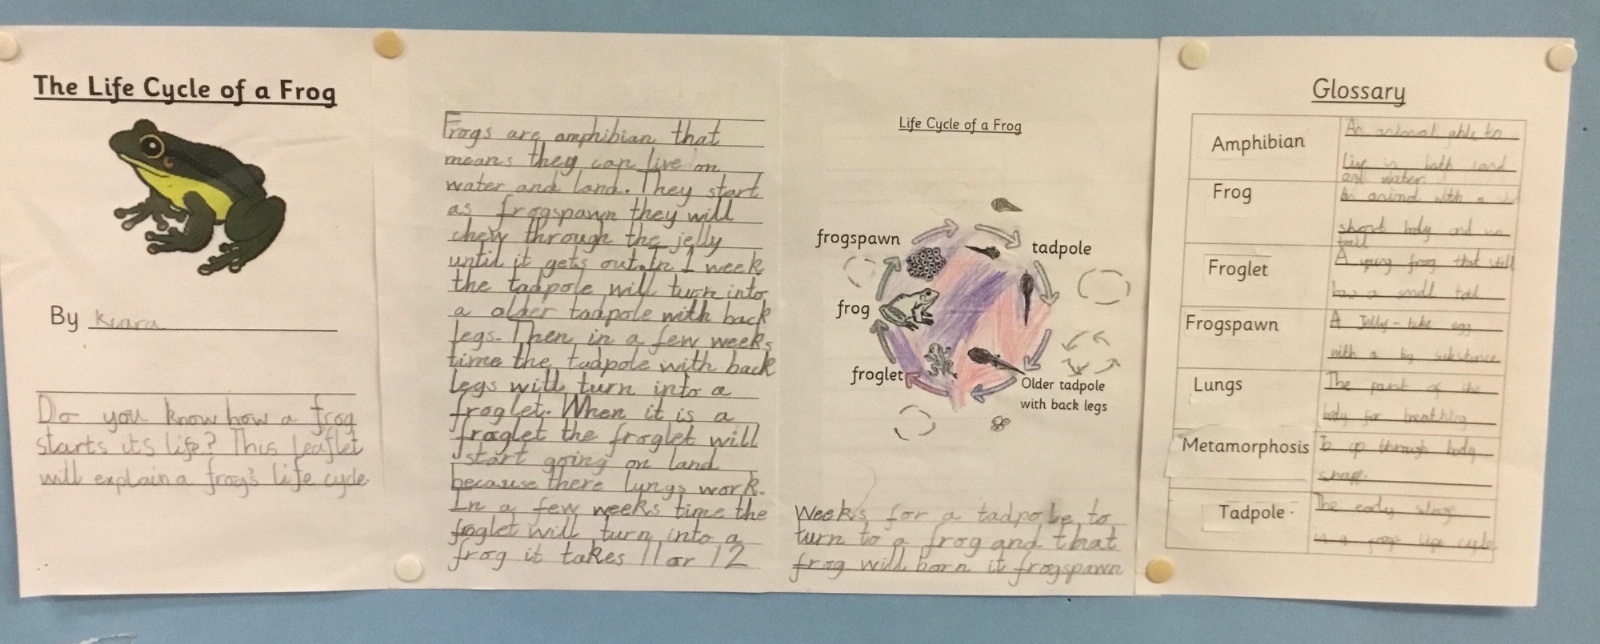 The Life Cycle of a Frog
By Kiara
Do you know how a frog
starts its life? This leaflet
will explain a frog's life cycle
Frogs are amphibian that
means they can live on
water and land. They start
as frogspawn they will
chew through the jelly
until it gets out. In 1 week
the tadpole will turn into
a older tadpole with back
legs. Then in a few weeks
time the tadpole with back
legs will turn into a
froglet. When it is a
froglet the froglet will
start going on land
because there lungs work.
In a few weeks time the
froglet will turn into a
frog it takes 11 or 12
Life Cycle of a Frog
frogspawn
tadpole
frog
froglet
Older tadpole
with back legs
Weeks for a tadpole to
turn to a frog and that
frog will born it frogspawn
Glossary
Amphibian
An animal able to
live in both land
and water.
Frog
An animal with a
short body and no
tail
Froglet
A young frog that still
has a small tail
Frogspawn
A Jelly-like egg
with a big substance
Lungs
The part of the
body for breathing
Metamorphosis
To go through body
Tadpole -
The early stage
in a frogs life cycle